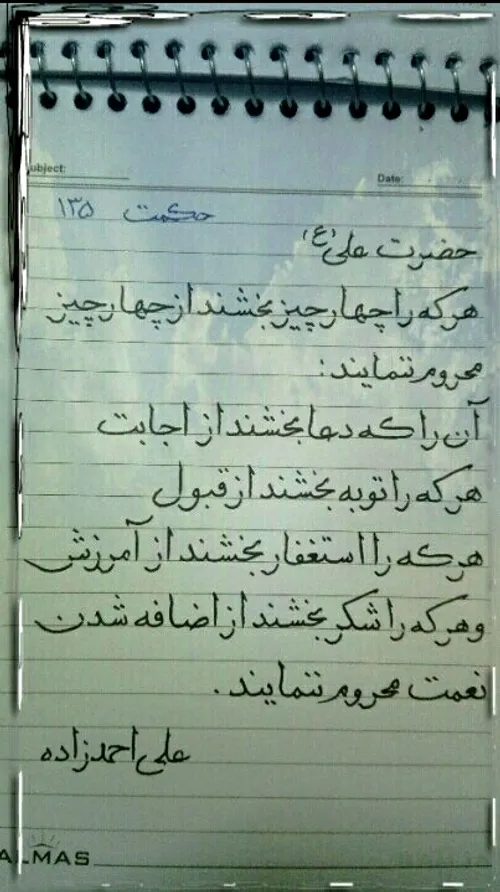 Subject:
Date:
حکمت ۱۳۵
حضرت علی (ع)
هرکه را چهار چیز بخشند از چهار چیز
محروم ننمایند:
آن را که دعا بخشند از اجابت
هرکه را توبه بخشند از قبول
هرکه را استغفار بخشند از آمرزش
و هرکه را شکر بخشند از اضافه شدن
نعمت محروم ننمایند.
علی احمدزاده
ALMAS